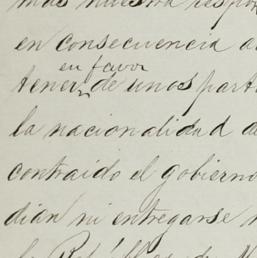 mas nuestra respon
en consecuencia a
en favor
tener de unos part
la nacionalidad de
contraido el gobierno
dian ni entregarse